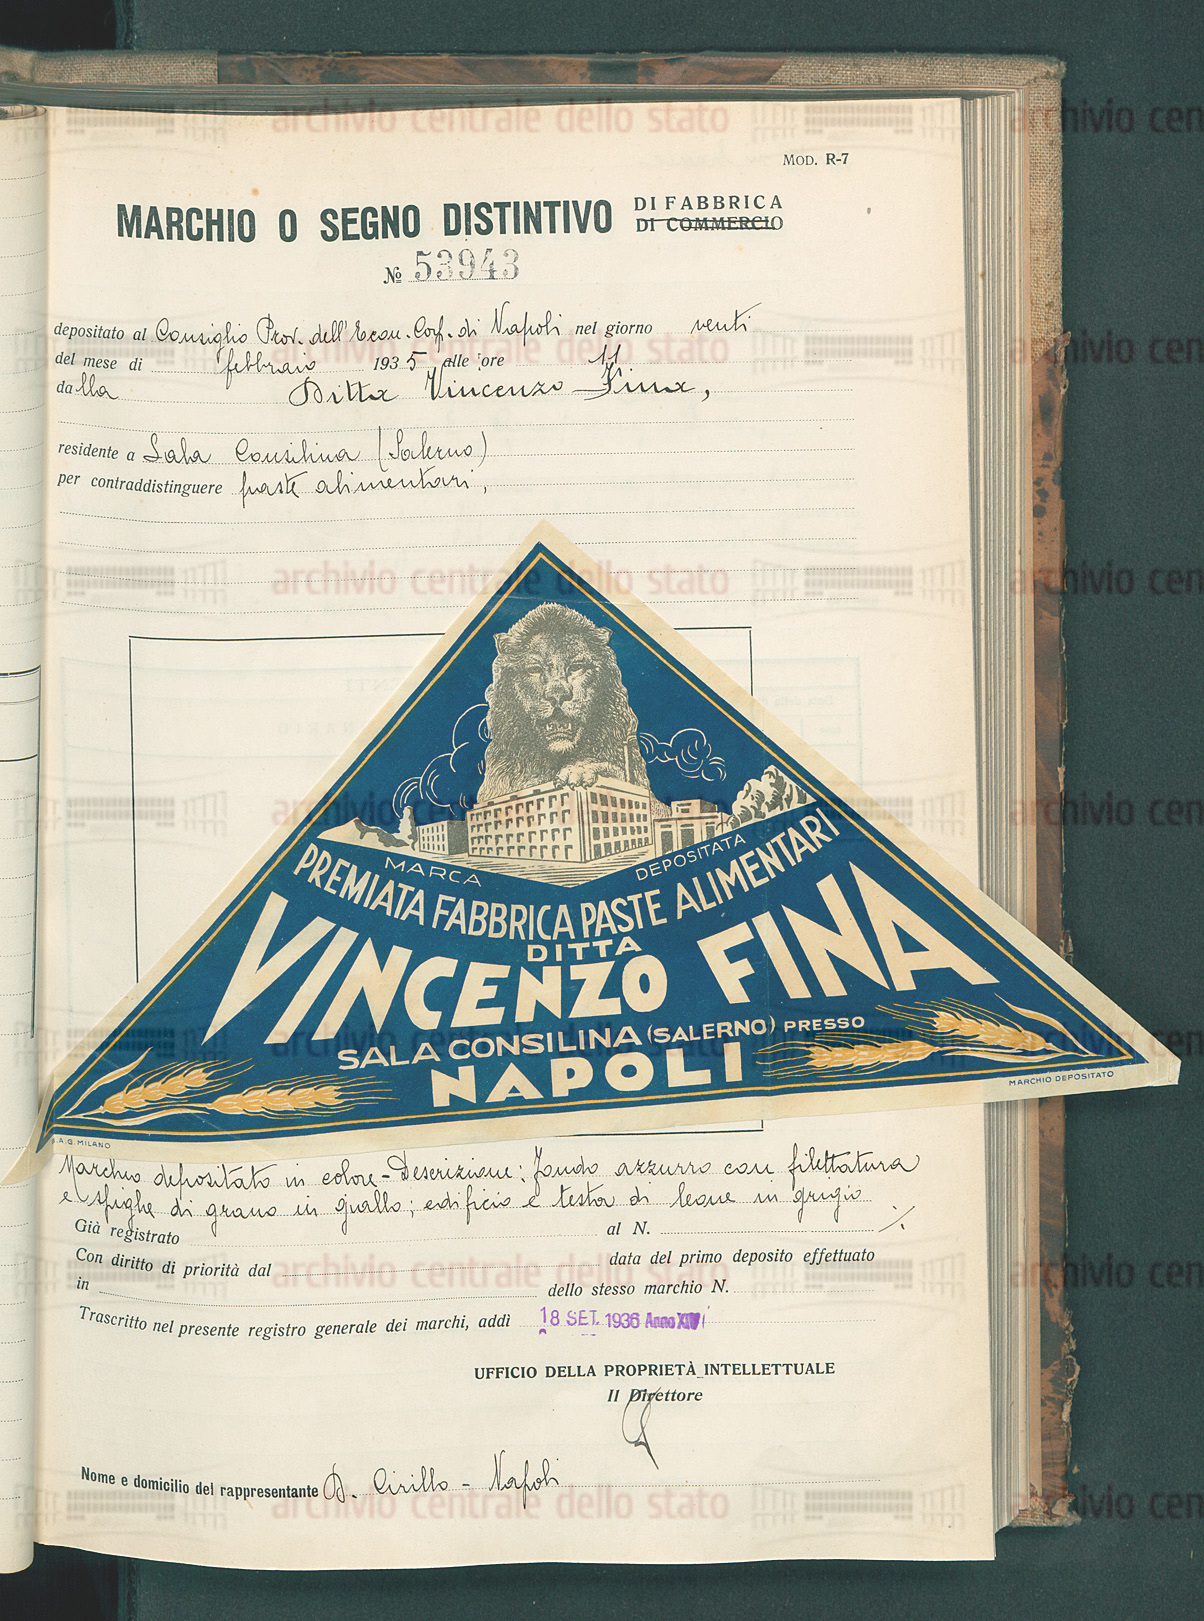 MOD. R-7
MARCHIO O SEGNO DISTINTIVO DI FABBRICA
DI COMMERCIO
№ 53943
depositato al Consiglio Prov. dell'Econ. Corp. di Napoli nel giorno venti
del mese di febbraio 1935 alle ore 11
dalla Ditta Vincenzo Fina,
residente a Sala Consilina (Salerno)
per contraddistinguere paste alimentari,
MARCA DEPOSITATA
PREMIATA FABBRICA PASTE ALIMENTARI
DITTA
VINCENZO FINA
SALA CONSILINA (SALERNO) PRESSO
NAPOLI
MARCHIO DEPOSITATO
S.A.G. MILANO
Marchio depositato in colore - Descrizione: Fondo azzurro con filettatura
e spighe di grano in giallo; edificio e testa di leone in grigio
Già registrato al N.
Con diritto di priorità dal data del primo deposito effettuato
in dello stesso marchio N.
Trascritto nel presente registro generale dei marchi, addì 18 SET. 1936 Anno XIV
UFFICIO DELLA PROPRIETÀ INTELLETTUALE
Il Direttore
Nome e domicilio del rappresentante D. Cirillo - Napoli
archivio centrale dello stato